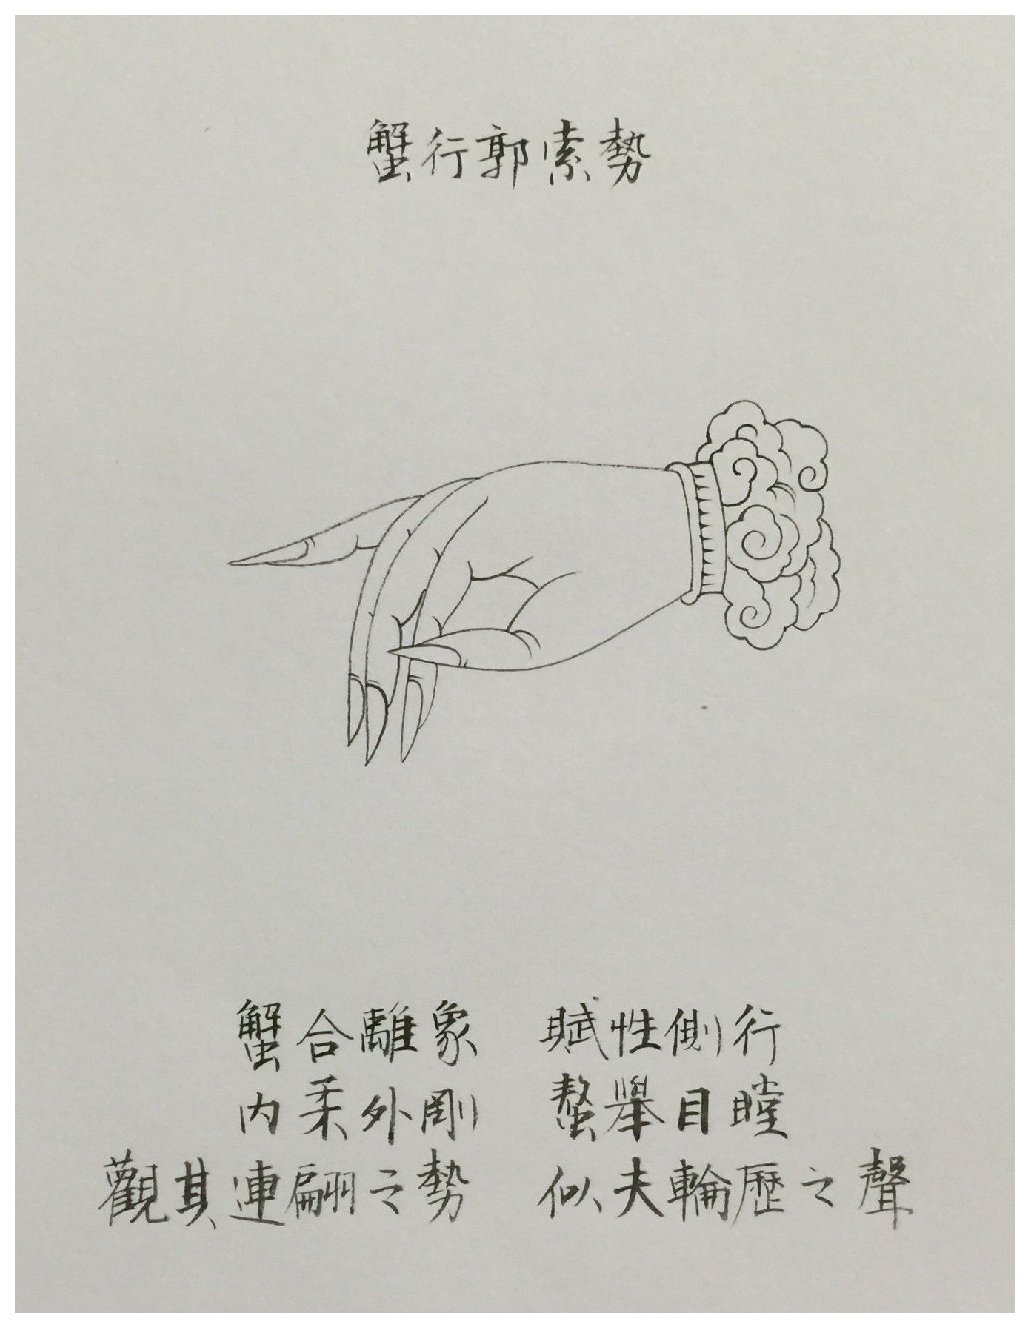 蟹行郭索勢
蟹合離象　賦性側行
内柔外剛　螯舉目瞠
觀其連翩之勢　似夫輪歷之聲